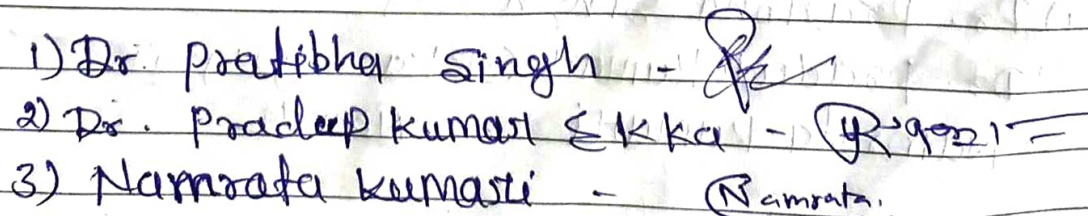 1) Dr. Pratibha Singh -
2) Dr. Pradeep Kumar Ekka -
3) Namrata Kumari - Namrata.